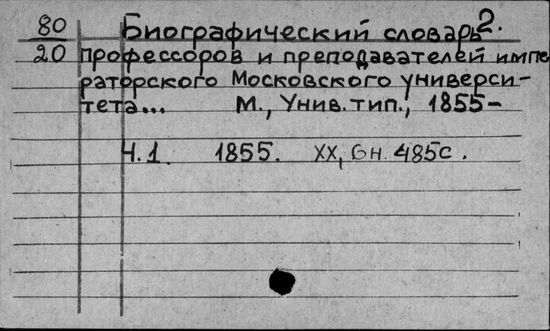 80 Биографический словарь 2.
20 профессоров и преподавателей импе
раторского Московского универси-
тета... М., Унив. тип., 1855-
Ч.1. 1855. XX, 6н. 485с.